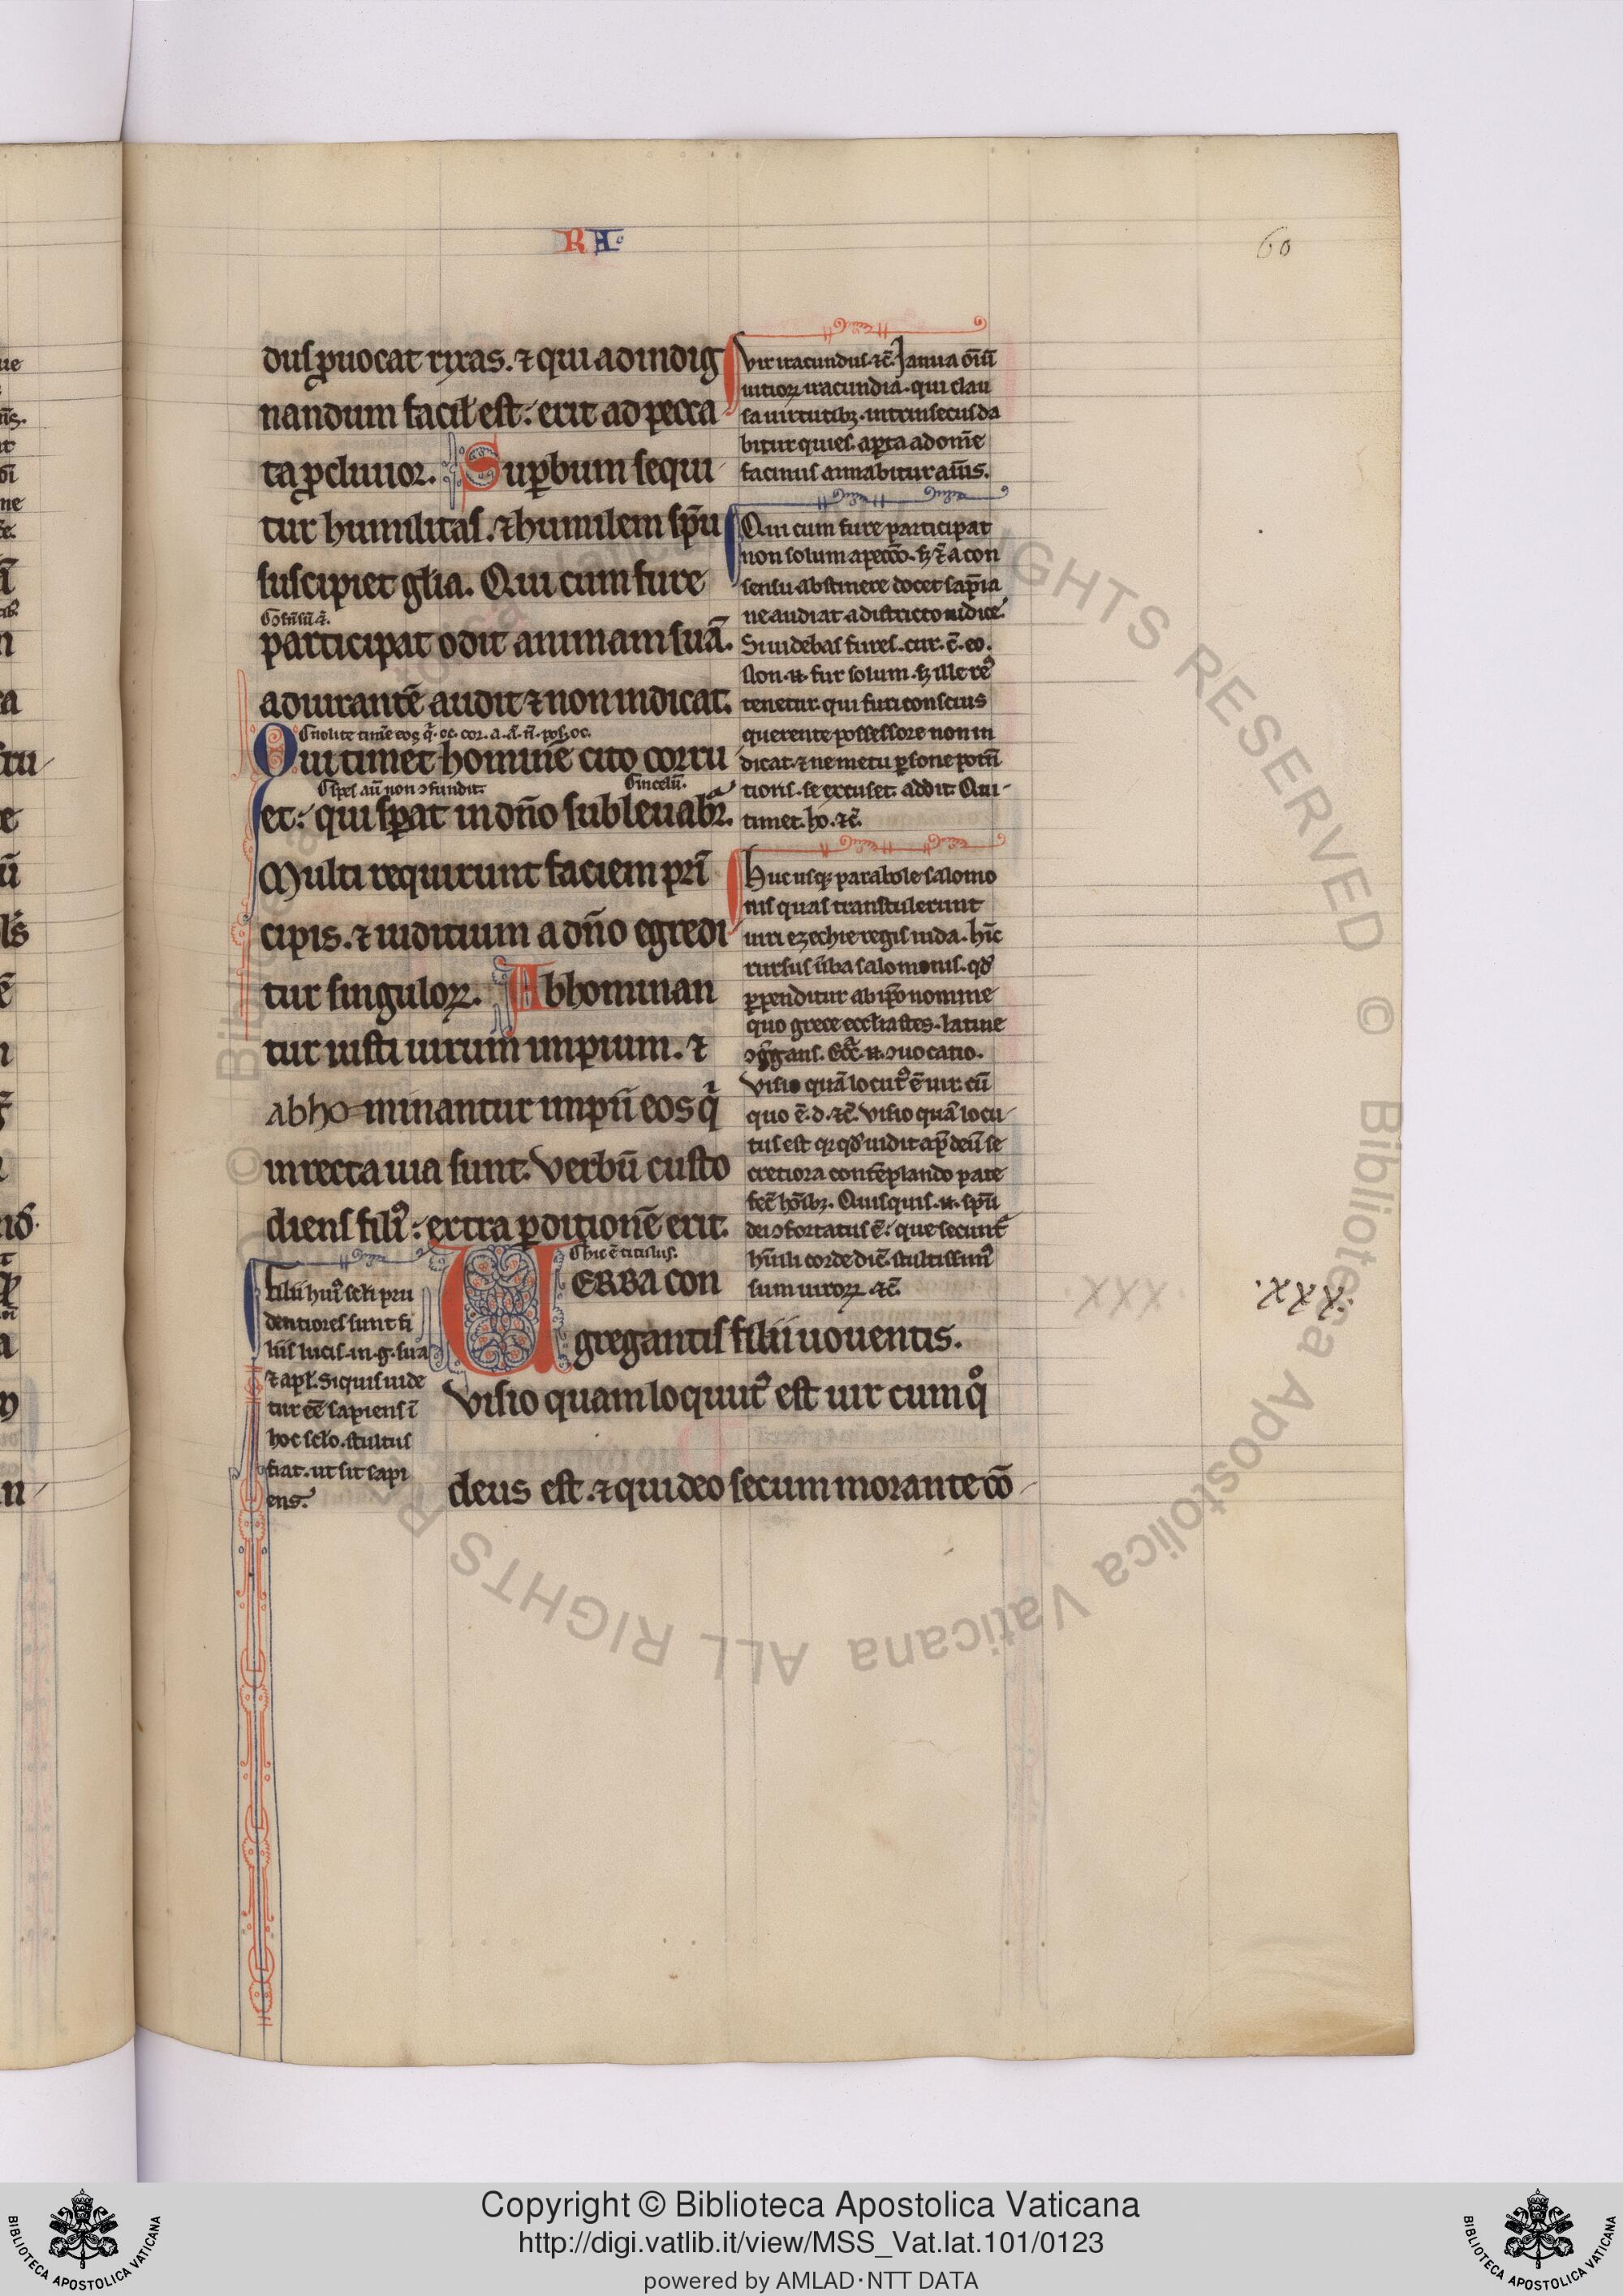 RA
60
dus ꝓuocat rixas. ⁊ qui ad indig
nandum facil̓ est: erit ad pecca
ta ꝓcliuior. Suꝑbum sequi
tur humilitas. ⁊ humilem sp̄u
suscipiet gl̄ia. Qui cum fure
participat odit animam suā.
adiurantē audit ⁊ non indicat.
Qui timet hominē cito corru
Spes aū non ↄfundit.
In celū.
et: qui sꝑat in dn̄o subleuabit᷑.
Multi requirunt faciem prī
cipis. ⁊ iuditium a dn̄o egredi
tur singuloꝝ. Abhominan
tur iusti uirum impium. ⁊
abhominantur impii eos q̄
in recta uia sunt. Verbū custo
diens filiꝰ: extra ꝑditionē erit.
hic ē titulus.
VERBA con
gregantis filii uouentis.
Visio quam loquutꝰ est uir cum qͦ
deus est. ⁊ qui deo secum morante cō
vir iracundus. ⁊c̄. Ianua om̄iū
uitioꝝ iracundia. qui clau
sa uirtutibꝫ. intrinsecus da
bitur quies. aꝑta ad omē
facinus armabitur aīus.
Qui cum fure participat
non solum a pecc̄o. sꝫ ⁊ a con
sensu abstinere docet sap̄ia
ne audiat a districto iudice.
Si uidebas furem. cur. c̄. eo.
Non. n̄. fur solum. sꝫ ille reꝰ
tenetur qui furti conscius
querente possessore non in
dicat. ⁊ ne metu ꝑsone potn̄
tioris. se excuset. addit. Qui
timet. ho. ⁊c̄.
Huc usqꝫ parabole salomo
nis quas transtulerunt
uiri ezechie regis iuda. hīc
rursus ūba salomonis. qd̓
ꝑpenditur ab ip̄o nomine
quo grece eccl̄iastes. latine
ↄgͬgans. Ecc̄. n̄. ↄuocatio.
Visio quā locutꝰ ē uir. cū
quo ē. d. ⁊c̄. Visio quā locu
tus est qꝛ qd̓ uidit ap̄ deū se
cretiora contēplando pate
fec̄ hoībꝫ. Quisquis. n̄. sp̄u
dei ↄfortatus ē: que secunt᷑
hūili corde dic̄. stultissimꝰ
sum uiroꝝ. ⁊c̄.
Filii huiꝰ sc̄li pru
dentiores sunt fi
liis lucis. in. g. sua
⁊ apl̓. Si quis uide
tur eē sapiens ī
hoc sc̄lo. stultus
fiat. ut sit sapi
ens.
XXX
.XXX.
Copyright © Biblioteca Apostolica Vaticana
http://digi.vatlib.it/view/MSS_Vat.lat.101/0123
powered by AMLAD·NTT DATA
BIBLIOTECA APOSTOLICA VATICANA
BIBLIOTECA APOSTOLICA VATICANA